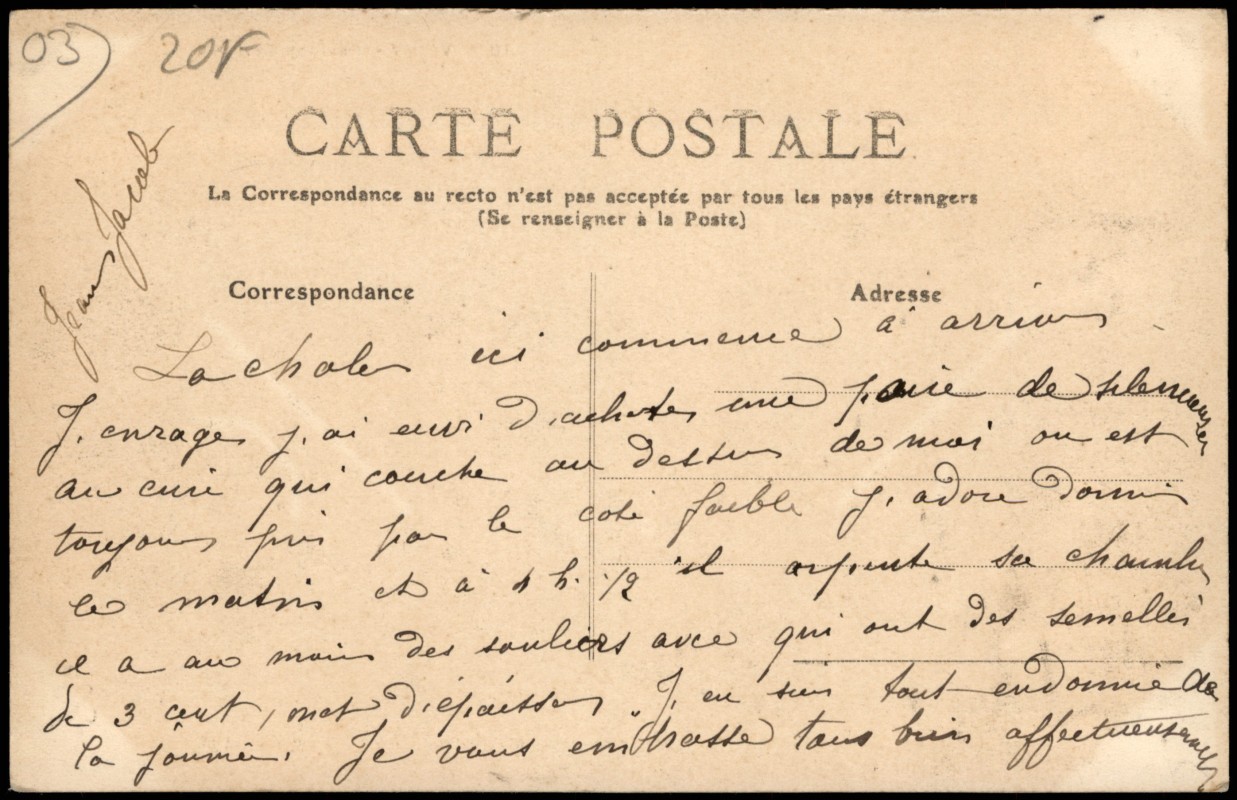 03
20F
CARTE POSTALE
La Correspondance au recto n'est pas acceptée par tous les pays étrangers
(Se renseigner à la Poste)
Correspondance
Adresse
La chaleur ici commence à arriver
J'enrage, j'ai envi d'acheter une paire de
au curé qui couche au dessus de moi on est
toujours pris par le coté faible J'adore dormir
le matin et à 4 h. 1/2 il arpente sa chambre
il a au moins des souliers avec qui ont des semelles
de 3 cent, met d'épaisseur J'en suis tout endormie de
la journée. Je vous embrasse tous bien affectueusement
Jean Jacob